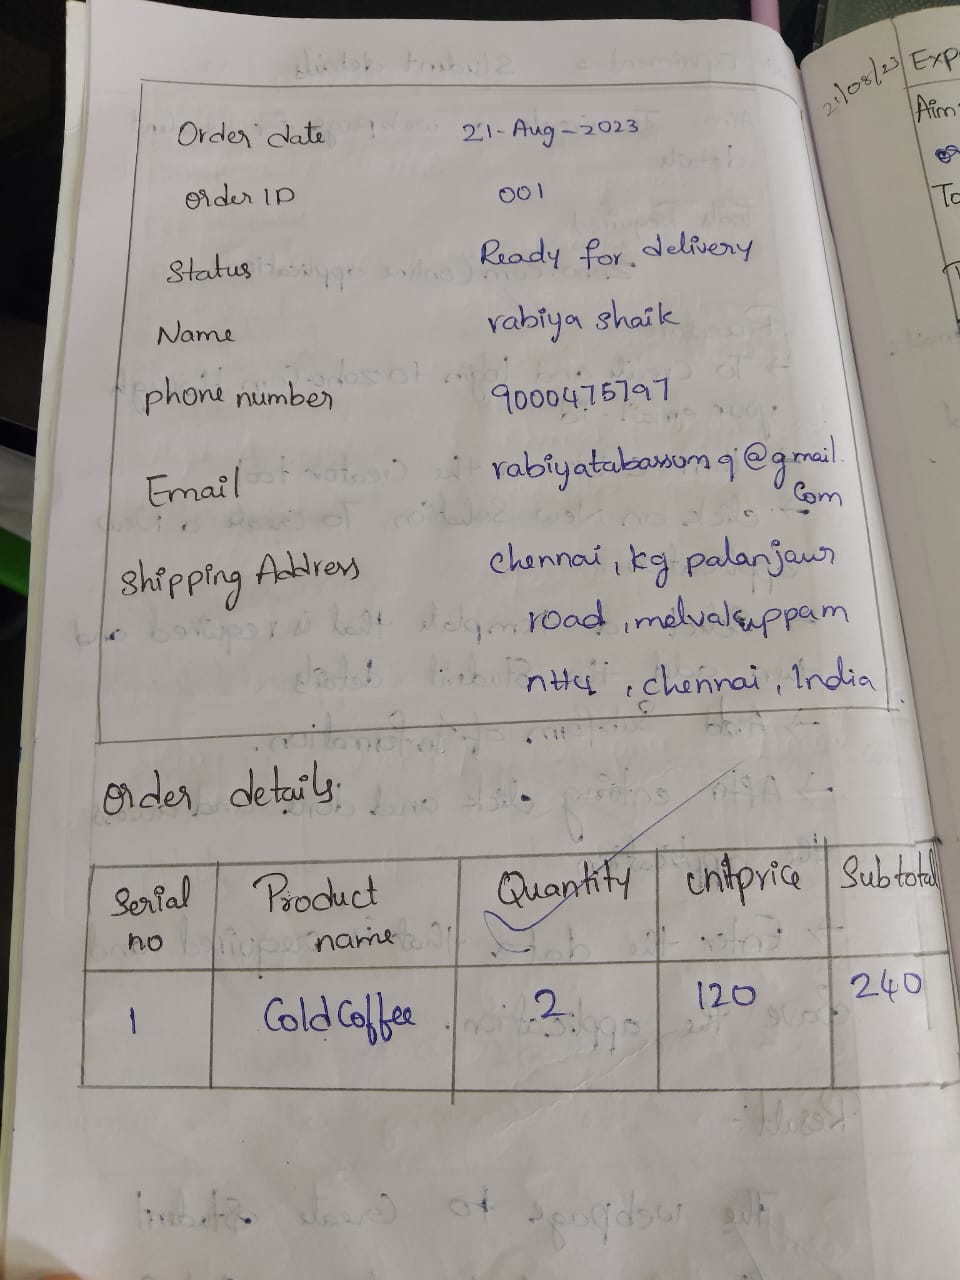 Order date : 21-Aug-2023
Order ID 001
Status Ready for delivery
Name rabiya shaik
phone number 9000475797
Email : rabiyatabassum9@gmail.
Com
Shipping Address chennai, kg palanjaur
road, melvalauppam
, chennai, India
Order details:
Serial no Product name Quantity Unitprice Subtotal
1 Cold Coffee 2 120 240
21/08/23
Exp
Aim:
To